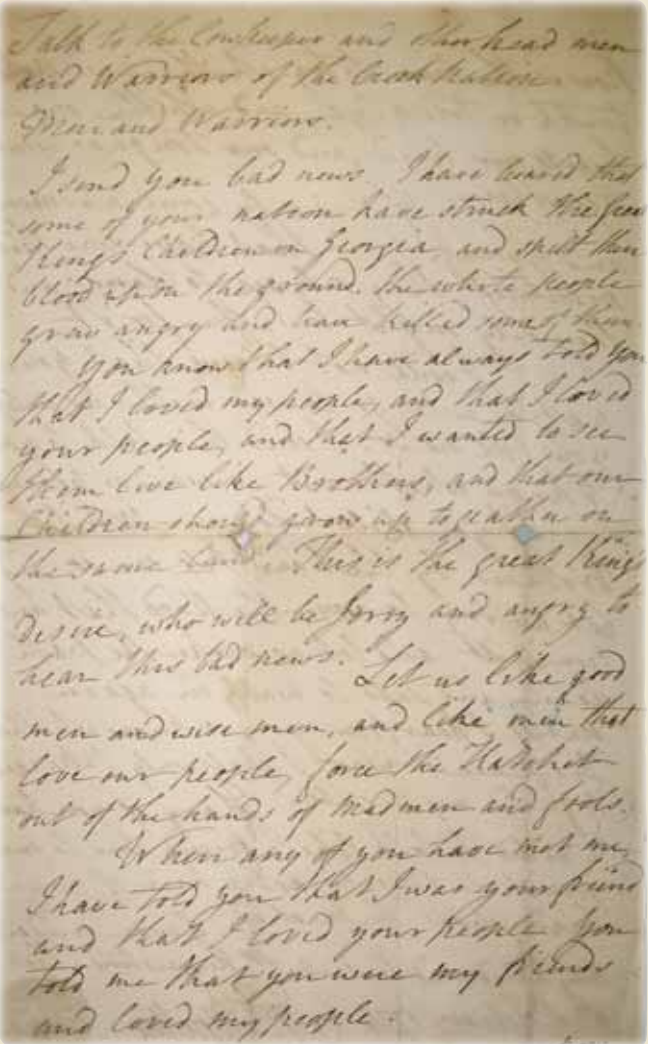 Talk to the Cowkeeper and other head men
and Warriors of the Creek Nation
Men and Warriors.
I send you bad news, I have heared that
some of your nation have struck the great
King's Children in Georgia and spilt their
blood upon the ground. the white people
grew angry and have killed some of them.
You know that I have always told you
that I loved my people, and that I loved
your people, and that I wanted to see
them live like Brothers, and that our
Children should grow up togeather on
the same land. This is the great King's
desire, who will be sorry and angry to
hear this bad news. Let us like good
men and wise men, and like men that
love our people, force the Hatchet
out of the hands of Madmen and fools.
When any of you have met me,
I have told you that I was your friend
and that I loved your people you
told me that you were my friends
and loved my people.